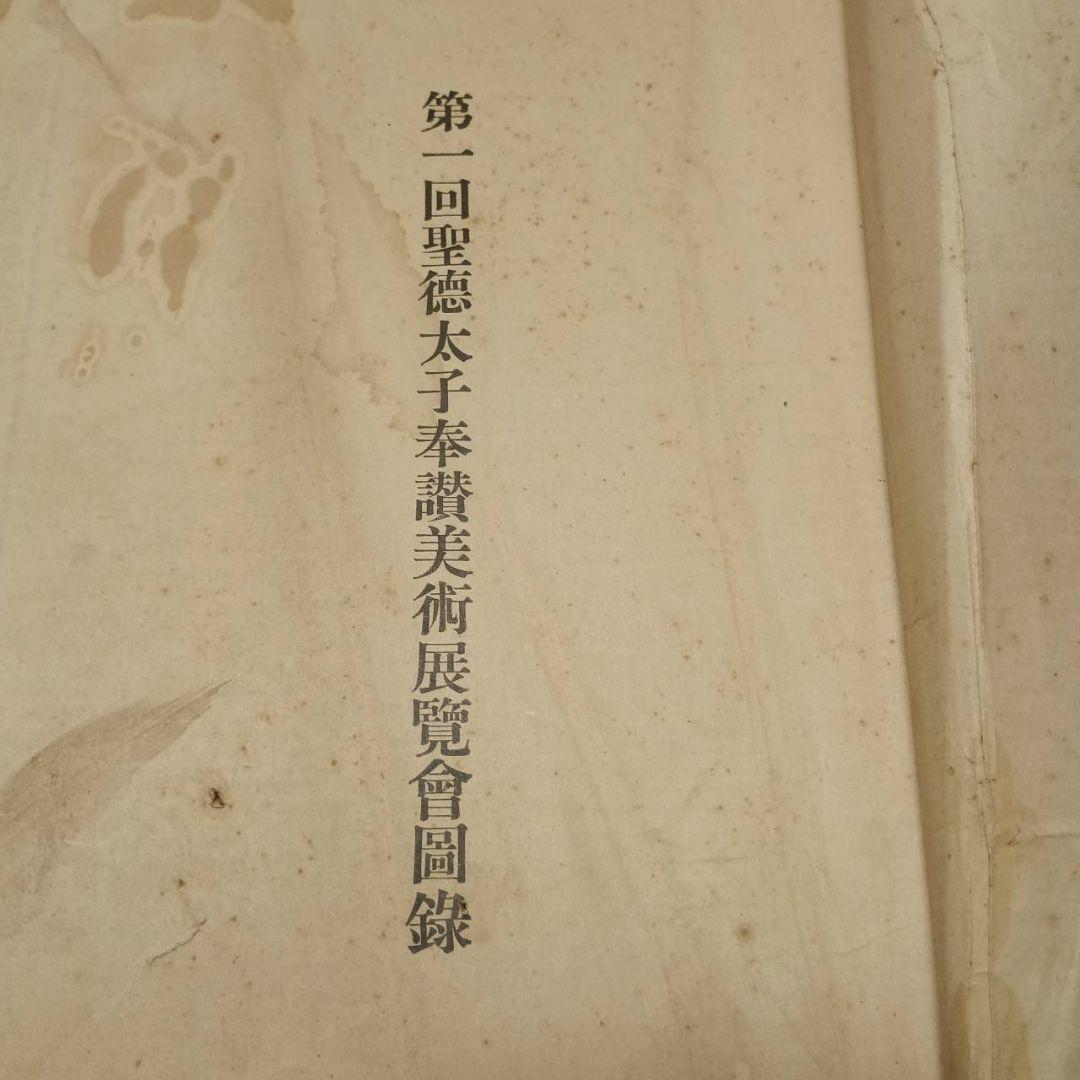 第一回聖德太子奉讃美術展覽會圖錄